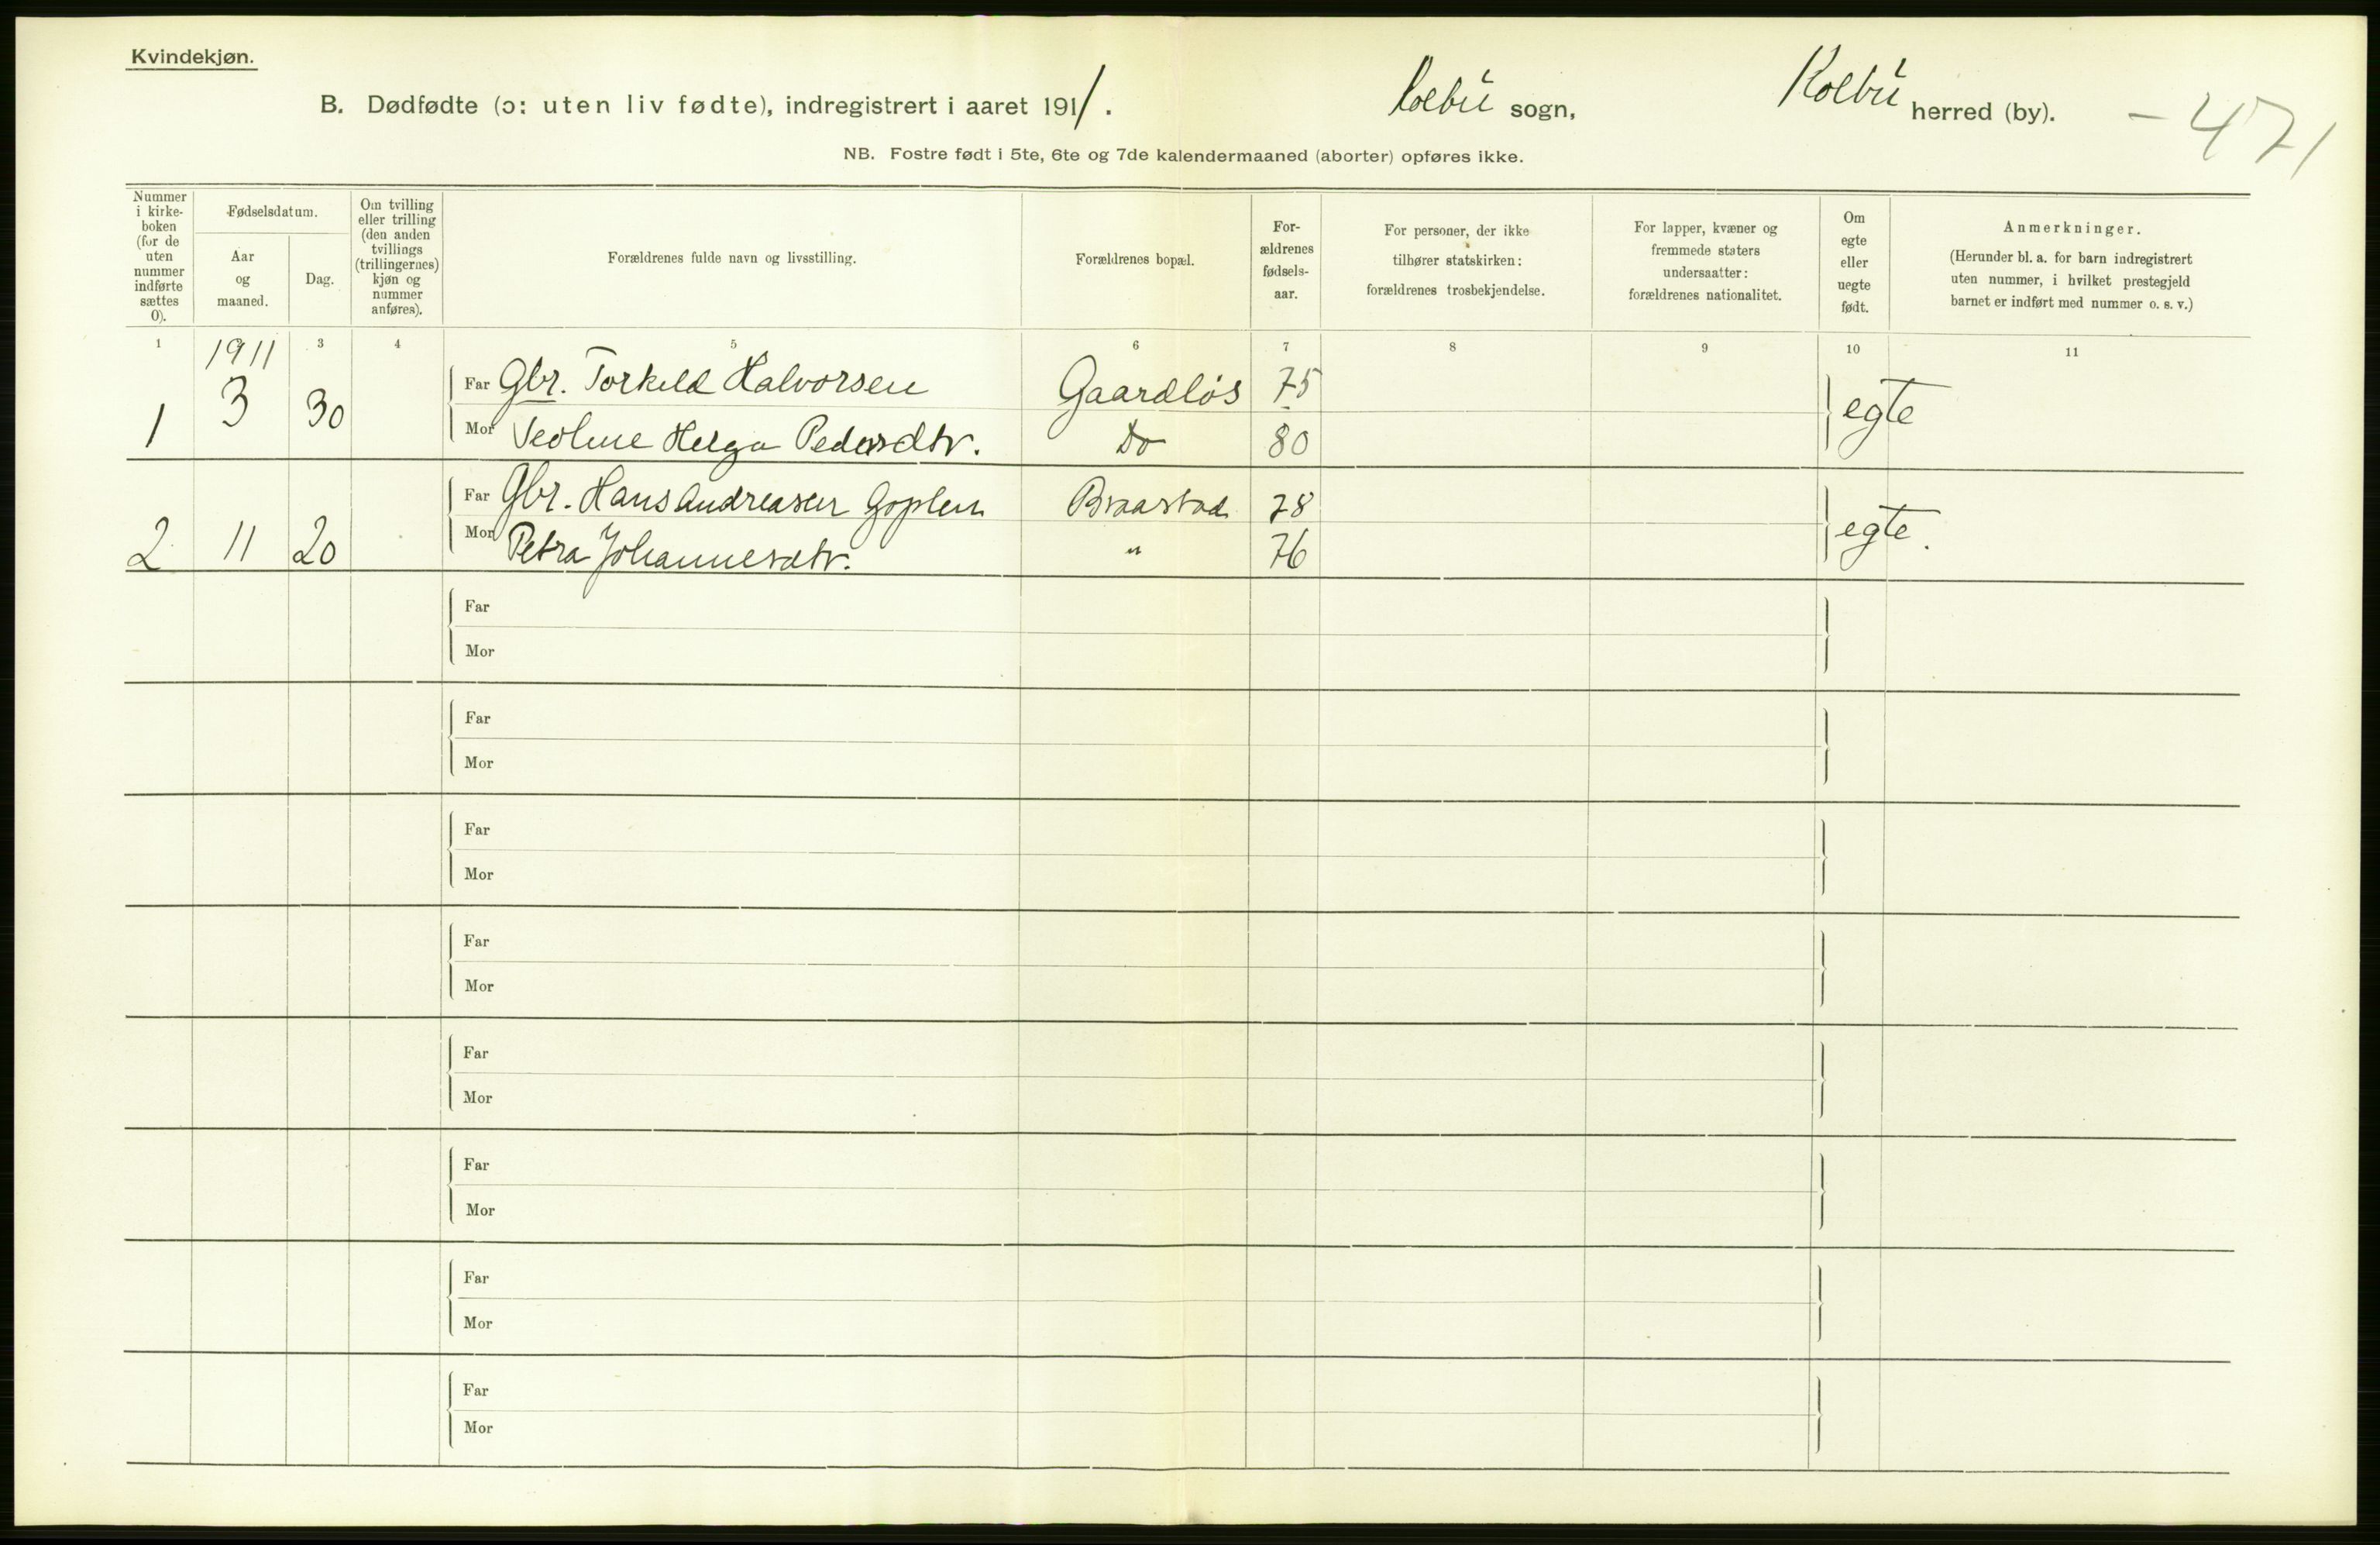 Kvindekjøn.
B. Dødfødte (ɔ: uten liv fødte), indregistrert i aaret 1911. Kolbu sogn, Kolbu herred (by). – 471
NB. Fostre født i 5te, 6te og 7de kalendermaaned (aborter) opføres ikke.
Nummer i kirke-boken (for de uten nummer indførte sættes 0).
Fødselsdatum.
Aar og maaned.
Dag.
Om tvilling eller trilling (den anden tvillings (trillingernes) kjøn og nummer anføres).
Forældrenes fulde navn og livsstilling.
Forældrenes bopæl.
For-ældrenes fødsels-aar.
For personer, der ikke tilhører statskirken: forældrenes trosbekjendelse.
For lapper, kvæner og fremmede staters undersaatter: forældrenes nationalitet.
Om egte eller uegte født.
Anmerkninger.
(Herunder bl. a. for barn indregistrert uten nummer, i hvilket prestegjeld barnet er indført med nummer o. s. v.)
1 1911 3 4 5 6 7 8 9 10 11
1 3 30 Far Gbr. Torkild Halvorsen Gaardløs 75 egte
Mor Helga Pedersdtr. Do 80
2 11 20 Far Gbr. Hans Andreasen Goplen Braastad 78 egte.
Mor Petra Johannesdtr. " 76
Far
Mor
Far
Mor
Far
Mor
Far
Mor
Far
Mor
Far
Mor
Far
Mor
Far
Mor